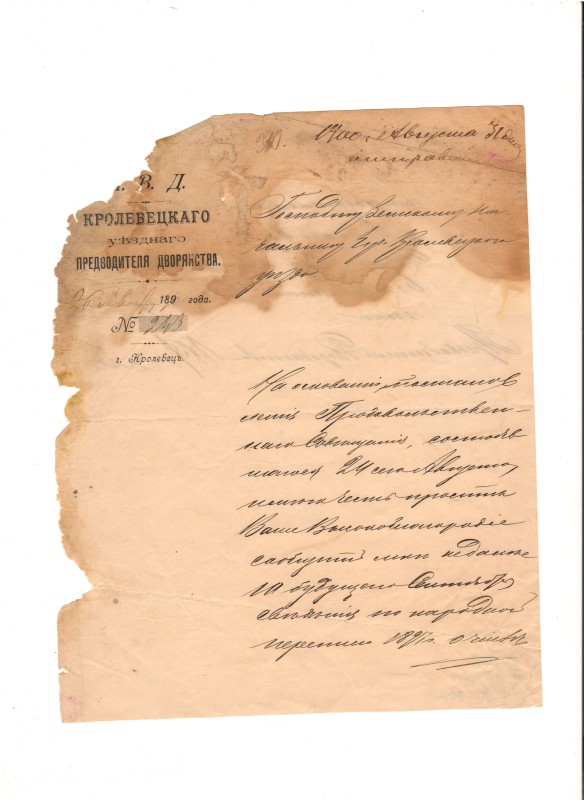 Августа
В. Д.
КРОЛЕВЕЦКАГО
УѢЗДНАГО
ПРЕДВОДИТЕЛЯ ДВОРЯНСТВА.
189 года.
№
г. Кролевецъ.
Господину Земскому На
чальнику Кролевецкого
уѣзда
На основаніи постанов
ленія Продовольствен-
наго Совѣщанія, состояв
шагося 24 сего Августа,
имѣю честь просить
Ваше Высокоблагородіе
сообщить мнѣ не далѣе
10 будущаго Сентября
свѣдѣнія по народной
переписи 1897 г. о